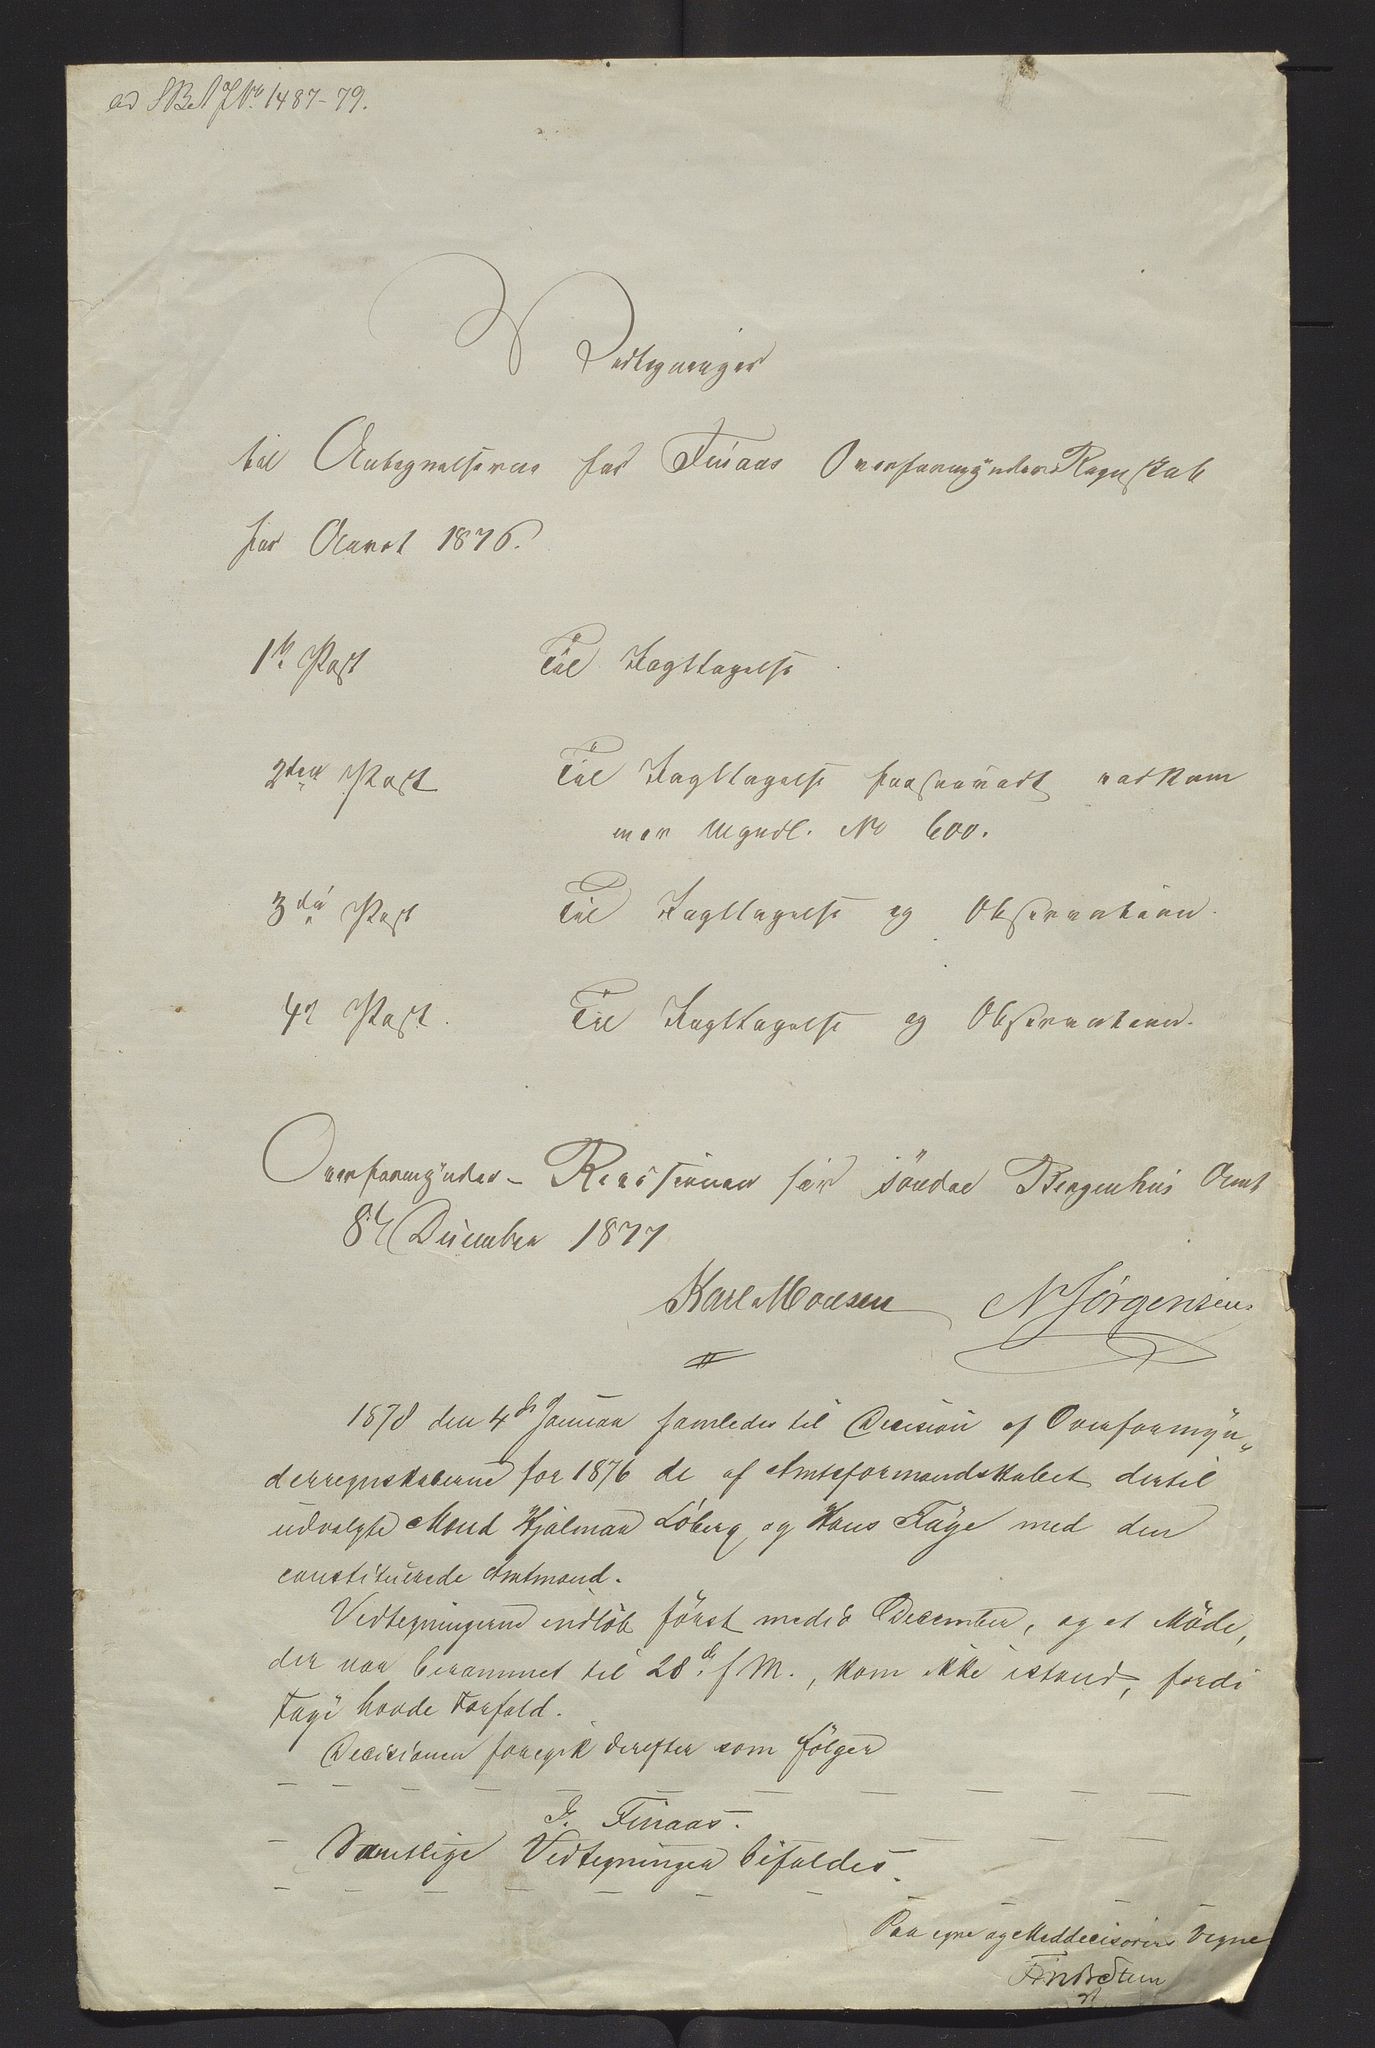 ad SBA J No 1487-79.
Vedtegninger
til Antegnelserne for Finaas Overformynder Regnskab
for Aaret 1876.
1ste Post Til Iagttagelse
2den Post Til Iagttagelse forsaavidt vedkom
mer Myndl. No 600.
3die Post Til Iagttagelse og Observation.
4de Post. Til Iagttagelse og Observation.
Overformynder-Revisionen for söndre Bergenhus Amt
8de December 1877
Karl Monsen N Jörgensen
1878 den 4de Januar samledes til Decision af Overformyn„
derregnskaberne for 1876 de af Amtsformandskabet dertil
udvalgte Mænd Hjalmar Löberg og Hans Tüge med den
constituerede Amtmand.
Vedtegningerne indlöb först medio December, og et Möde,
der var berammet til 28de f M., kom ikke istand, fordi
havde Forfald.
Decisionen foregik derefter som fölger
I. Finaas.
Samtlige Vedtegninger bifaldes.
Paa egne og Meddecisorers Vegne